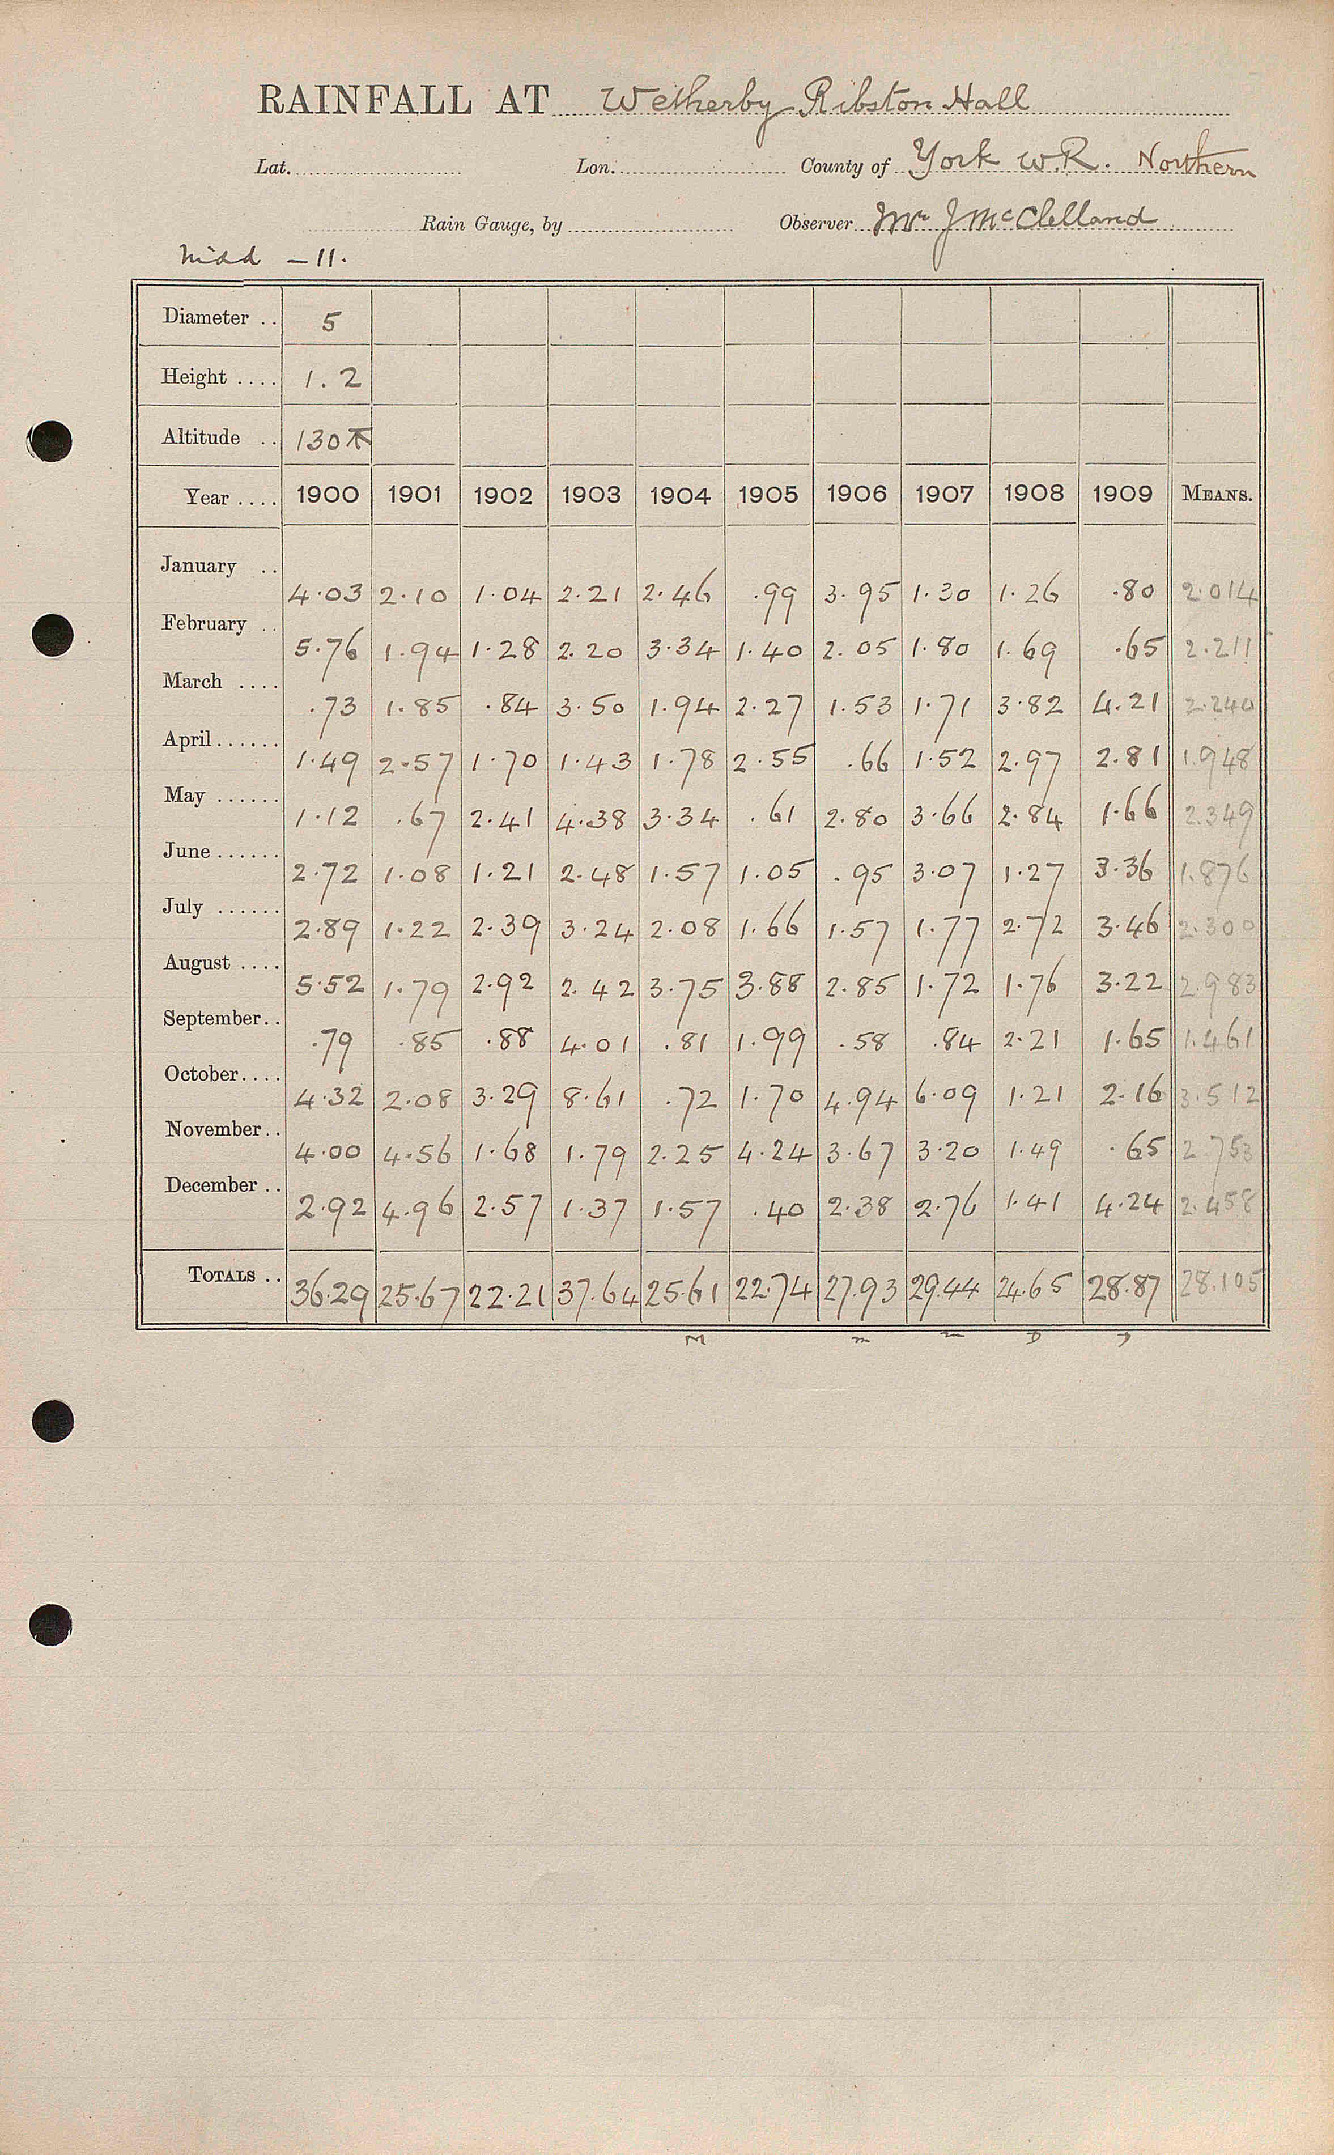 RAINFALL AT Wetherby Ribston Hall
Lat. Lon. County of York W.R. Northern
Rain Gauge, by Observer Mr J McClelland
Nidd - 11.
Diameter .. 5
Height .... 1.2
Altitude .. 130
Year .... 1900 1901 1902 1903 1904 1905 1906 1907 1908 1909 MEANS.
January .. 4.03 2.10 1.04 2.21 2.46 .99 3.95 1.30 1.26 .80 2.014
February .. 5.76 1.94 1.28 2.20 3.34 1.40 2.05 1.80 1.69 .65 2.211
March .... .73 1.85 .84 3.50 1.94 2.27 1.53 1.71 3.82 4.21 2.240
April ...... 1.49 2.57 1.70 1.43 1.78 2.55 .66 1.52 2.97 2.81 1.948
May ...... 1.12 .67 2.41 4.38 3.34 .61 2.80 3.66 2.84 1.66 2.349
June ...... 2.72 1.08 1.21 2.48 1.57 1.05 .95 3.07 1.27 3.36 1.876
July ...... 2.89 1.22 2.39 3.24 2.08 1.66 1.57 1.77 2.72 3.46 2.300
August .... 5.52 1.79 2.92 2.42 3.75 3.88 2.85 1.72 1.76 3.22 2.983
September .. .79 .85 .88 4.01 .81 1.99 .58 .84 2.21 1.65 1.461
October .... 4.32 2.08 3.29 8.61 .72 1.70 4.94 6.09 1.21 2.16 3.512
November .. 4.00 4.56 1.68 1.79 2.25 4.24 3.67 3.20 1.49 .65 2.753
December .. 2.92 4.96 2.57 1.37 1.57 .40 2.38 2.76 1.41 4.24 2.458
TOTALS .. 36.29 25.67 22.21 37.64 25.61 22.74 27.93 29.44 24.65 28.87 28.105